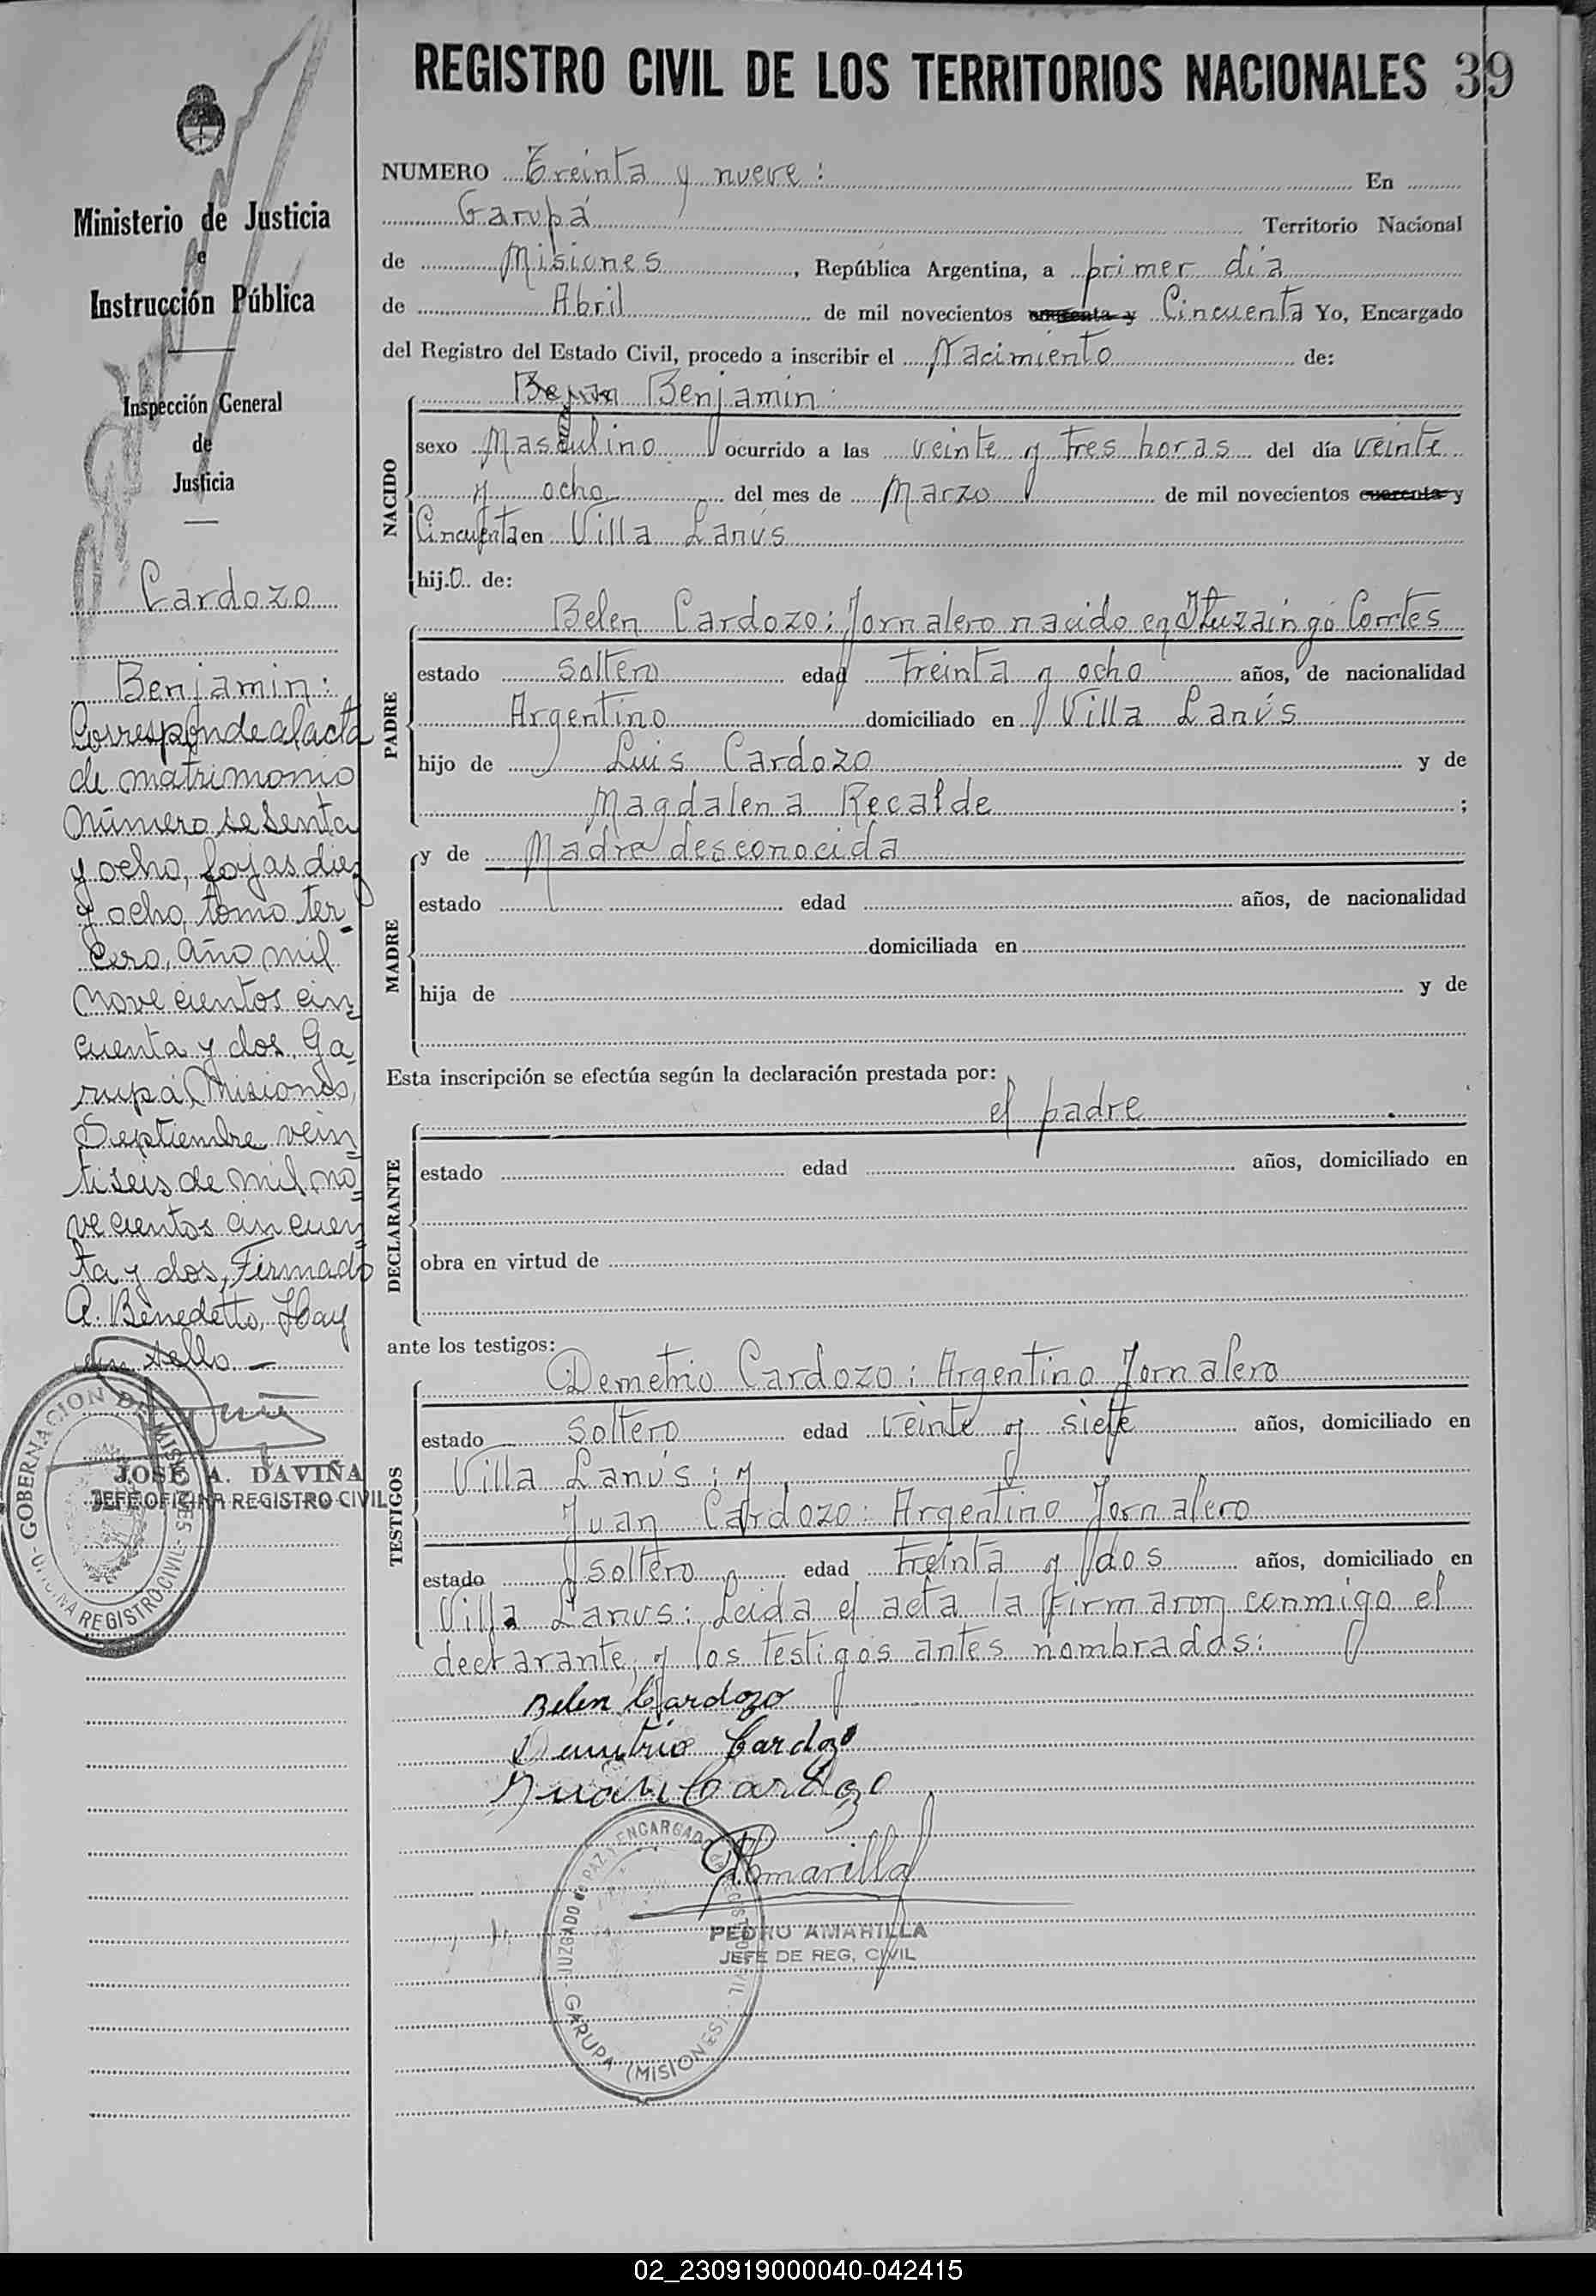 REGISTRO CIVIL DE LOS TERRITORIOS NACIONALES 39
Ministerio de Justicia
e
Instrucción Pública
Inspección General
de
Justicia
Cardozo
Benjamin:
Corresponde al acta
de matrimonio
número sesenta
y ocho, fojas diez
y ocho, tomo ter-
cero, año mil
novecientos cin=
cuenta y dos, Ga=
rupá, Misiones,
Septiembre vein=
tiseis de mil no=
vecientos cincuen=
ta y dos, Firmado
A. Benedetto, Hay
un sello —
GOBERNACION DE MISIONES - OFICINA REGISTRO CIVIL -
JOSE A. DAVIÑA
JEFE OFICINA REGISTRO CIVIL
NUMERO Treinta y nueve: En
Garupá Territorio Nacional
de Misiones, República Argentina, a primer dia
de Abril de mil novecientos cuarenta y Cincuenta Yo, Encargado
del Registro del Estado Civil, procedo a inscribir el Nacimiento de:
NACIDO
Benjamin:
sexo Masculino ocurrido a las veinte y tres horas del día veinte
y ocho del mes de Marzo de mil novecientos cuarenta y
Cincuenta en Villa Lanús
hijo de:
PADRE
Belen Cardozo: Jornalero nacido en Ituzaingó Corrtes
estado soltero edad treinta y ocho años, de nacionalidad
Argentino domiciliado en Villa Lanús
hijo de Luis Cardozo y de
Magdalena Recalde ;
MADRE
y de Madre desconocida
estado edad años, de nacionalidad
domiciliada en
hija de y de
Esta inscripción se efectúa según la declaración prestada por:
el padre
DECLARANTE
estado edad años, domiciliado en
obra en virtud de
ante los testigos:
TESTIGOS
Demetrio Cardozo: Argentino Jornalero
estado soltero edad veinte y siete años, domiciliado en
Villa Lanús: y
Juan Cardozo: Argentino Jornalero
estado soltero edad treinta y dos años, domiciliado en
Villa Lanus: Leida el acta la firmaron conmigo el
declarante, y los testigos antes nombrados:
Belen Cardozo
Demetrio Cardozo
Juan Cardozo
PAmarilla
PEDRO AMARILLA
JEFE DE REG. CIVIL
JUZGADO de PAZ y ENCARGADO REGISTRO CIVIL
GARUPA (MISIONES)
02_230919000040-042415